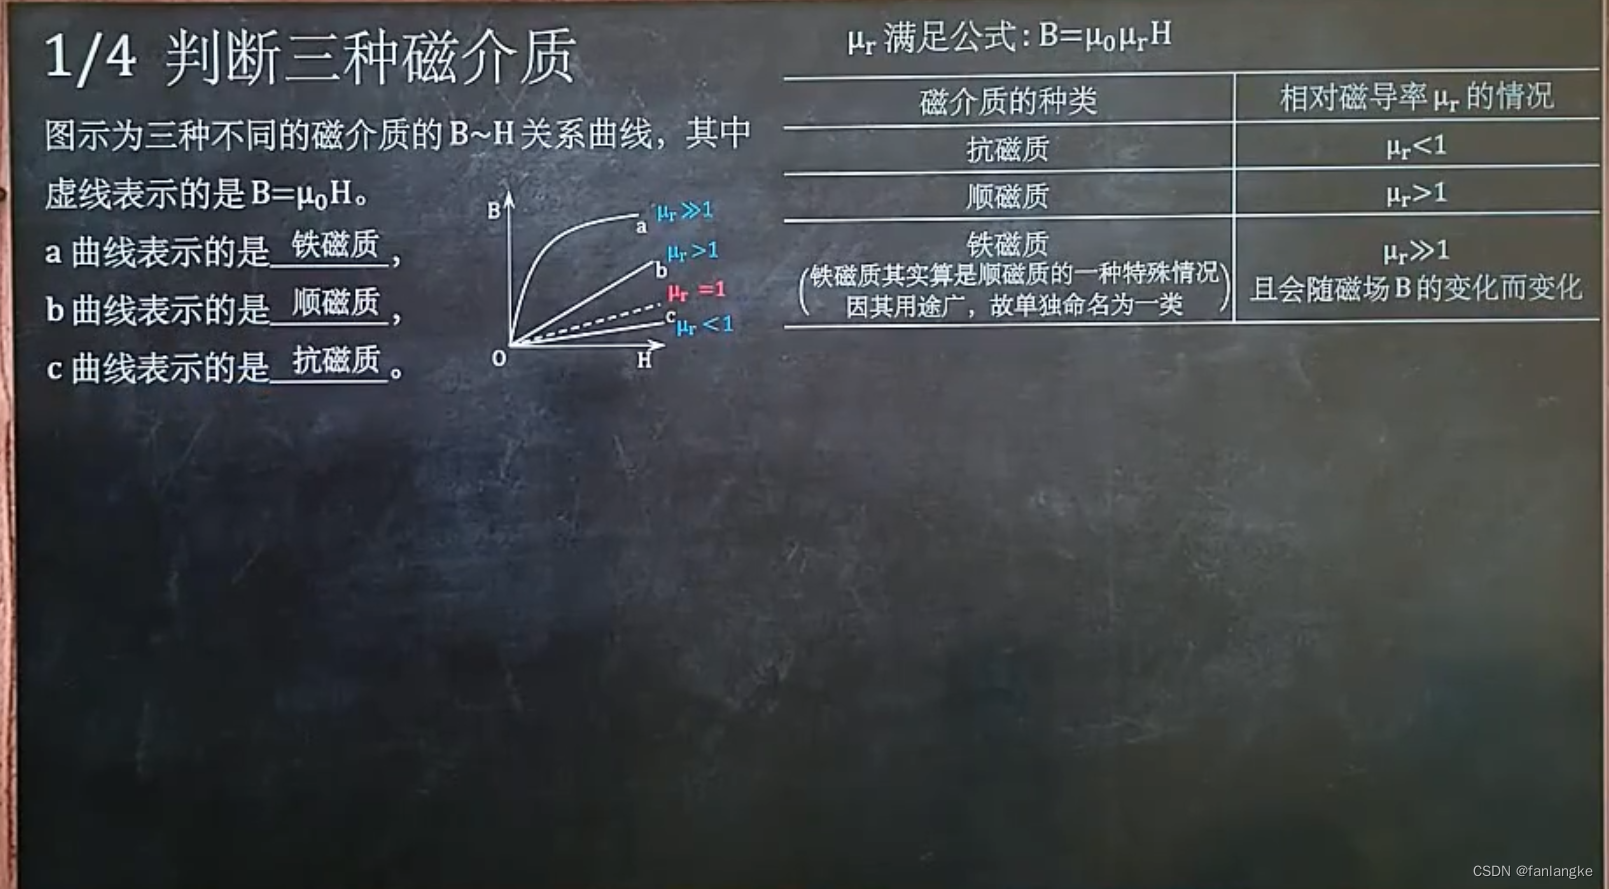 1/4 判断三种磁介质
图示为三种不同的磁介质的B~H关系曲线，其中
虚线表示的是B=μ₀H。
a 曲线表示的是 铁磁质，
b 曲线表示的是 顺磁质，
c 曲线表示的是 抗磁质。
B
a
μᵣ≫1
μᵣ>1
b
μᵣ=1
c
μᵣ<1
O
H
μᵣ 满足公式：B=μ₀μᵣH
磁介质的种类 相对磁导率 μᵣ 的情况
抗磁质 μᵣ<1
顺磁质 μᵣ>1
铁磁质
(铁磁质其实算是顺磁质的一种特殊情况
因其用途广，故单独命名为一类)
μᵣ≫1
且会随磁场 B 的变化而变化
CSDN @fanlangke